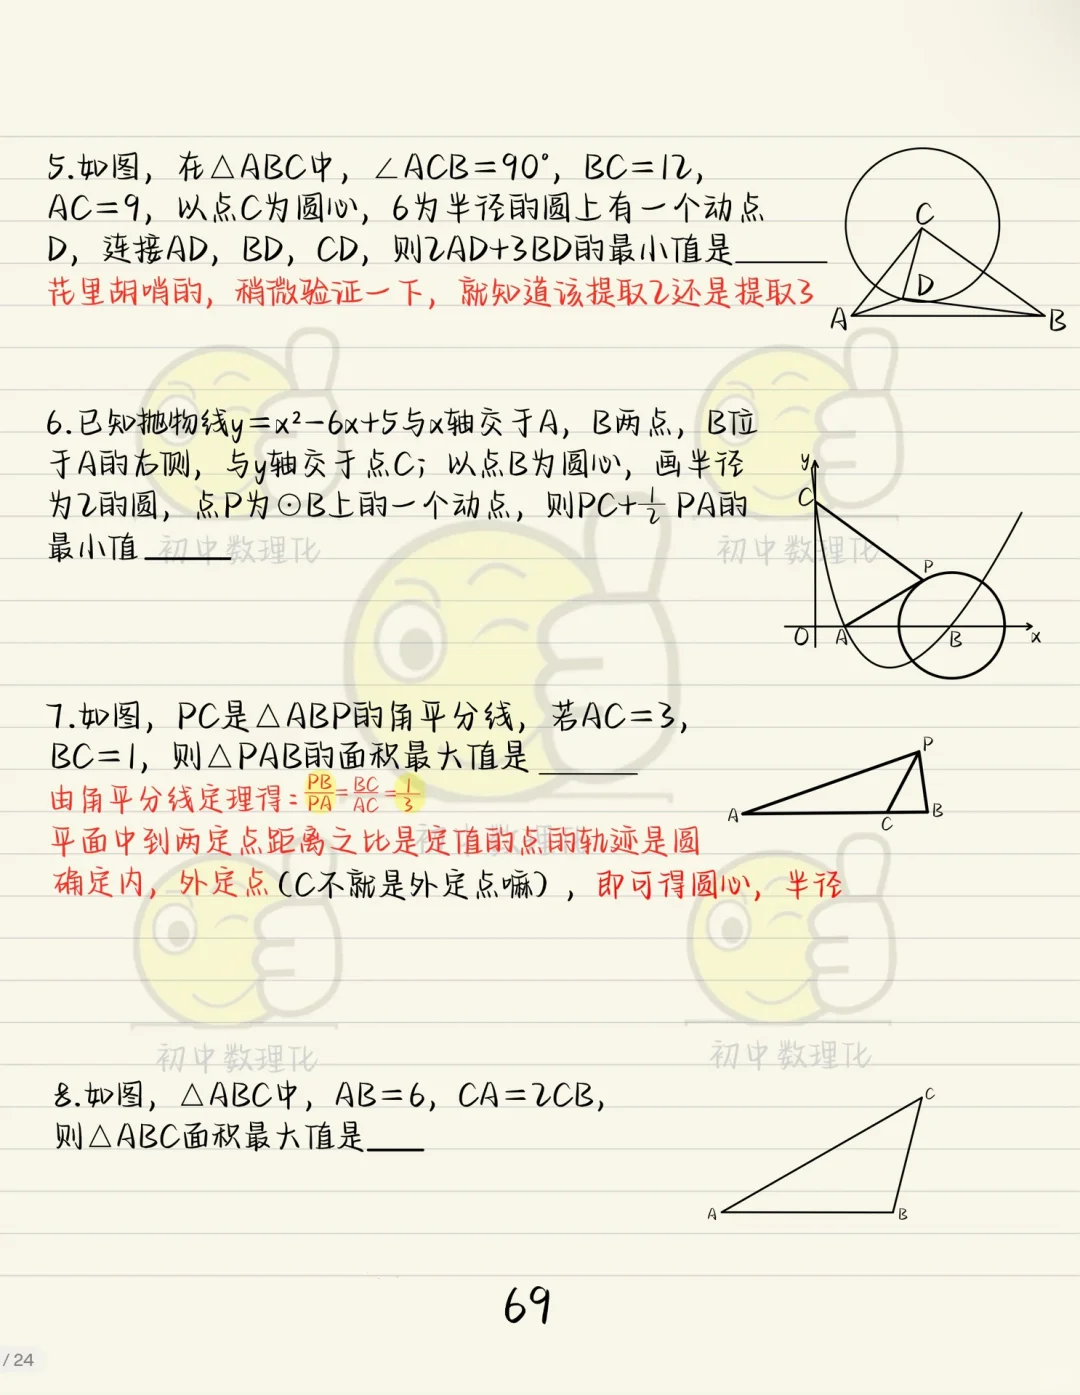 5.如图，在△ABC中，∠ACB=90°，BC=12，
AC=9，以点C为圆心，6为半径的圆上有一个动点
D，连接AD，BD，CD，则2AD+3BD的最小值是____
花里胡哨的，稍微验证一下，就知道该提取2还是提取3
C
D
A
B
6.已知抛物线y=x²-6x+5与x轴交于A，B两点，B位
于A的右侧，与y轴交于点C；以点B为圆心，画半径
为2的圆，点P为⊙B上的一个动点，则PC+1/2 PA的
最小值____
y
C
P
O
A
B
x
初中数理化
初中数理化
7.如图，PC是△ABP的角平分线，若AC=3，
BC=1，则△PAB的面积最大值是____
由角平分线定理得：PB/PA=BC/AC=1/3
平面中到两定点距离之比是定值的点的轨迹是圆
确定内，外定点（C不就是外定点嘛），即可得圆心，半径
P
A
C
B
初中数理化
初中数理化
初中数理化
8.如图，△ABC中，AB=6，CA=2CB，
则△ABC面积最大值是____
C
A
B
69
/ 24